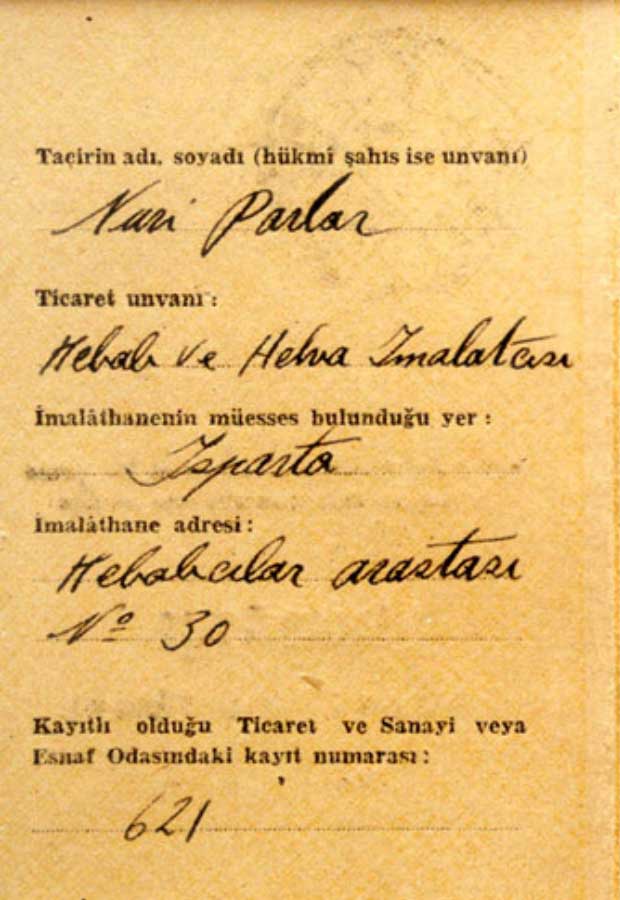 Tacirin adı, soyadı (hükmî şahıs ise unvanı)
Nuri Parlar
Ticaret unvanı :
Kebab ve Helva İmalatcısı
İmalâthanenin müesses bulunduğu yer :
Isparta
İmalâthane adresi :
Kebabcılar arastası
Nº 30
Kayıtlı olduğu Ticaret ve Sanayi veya
Esnaf Odasındaki kayıt numarası :
621